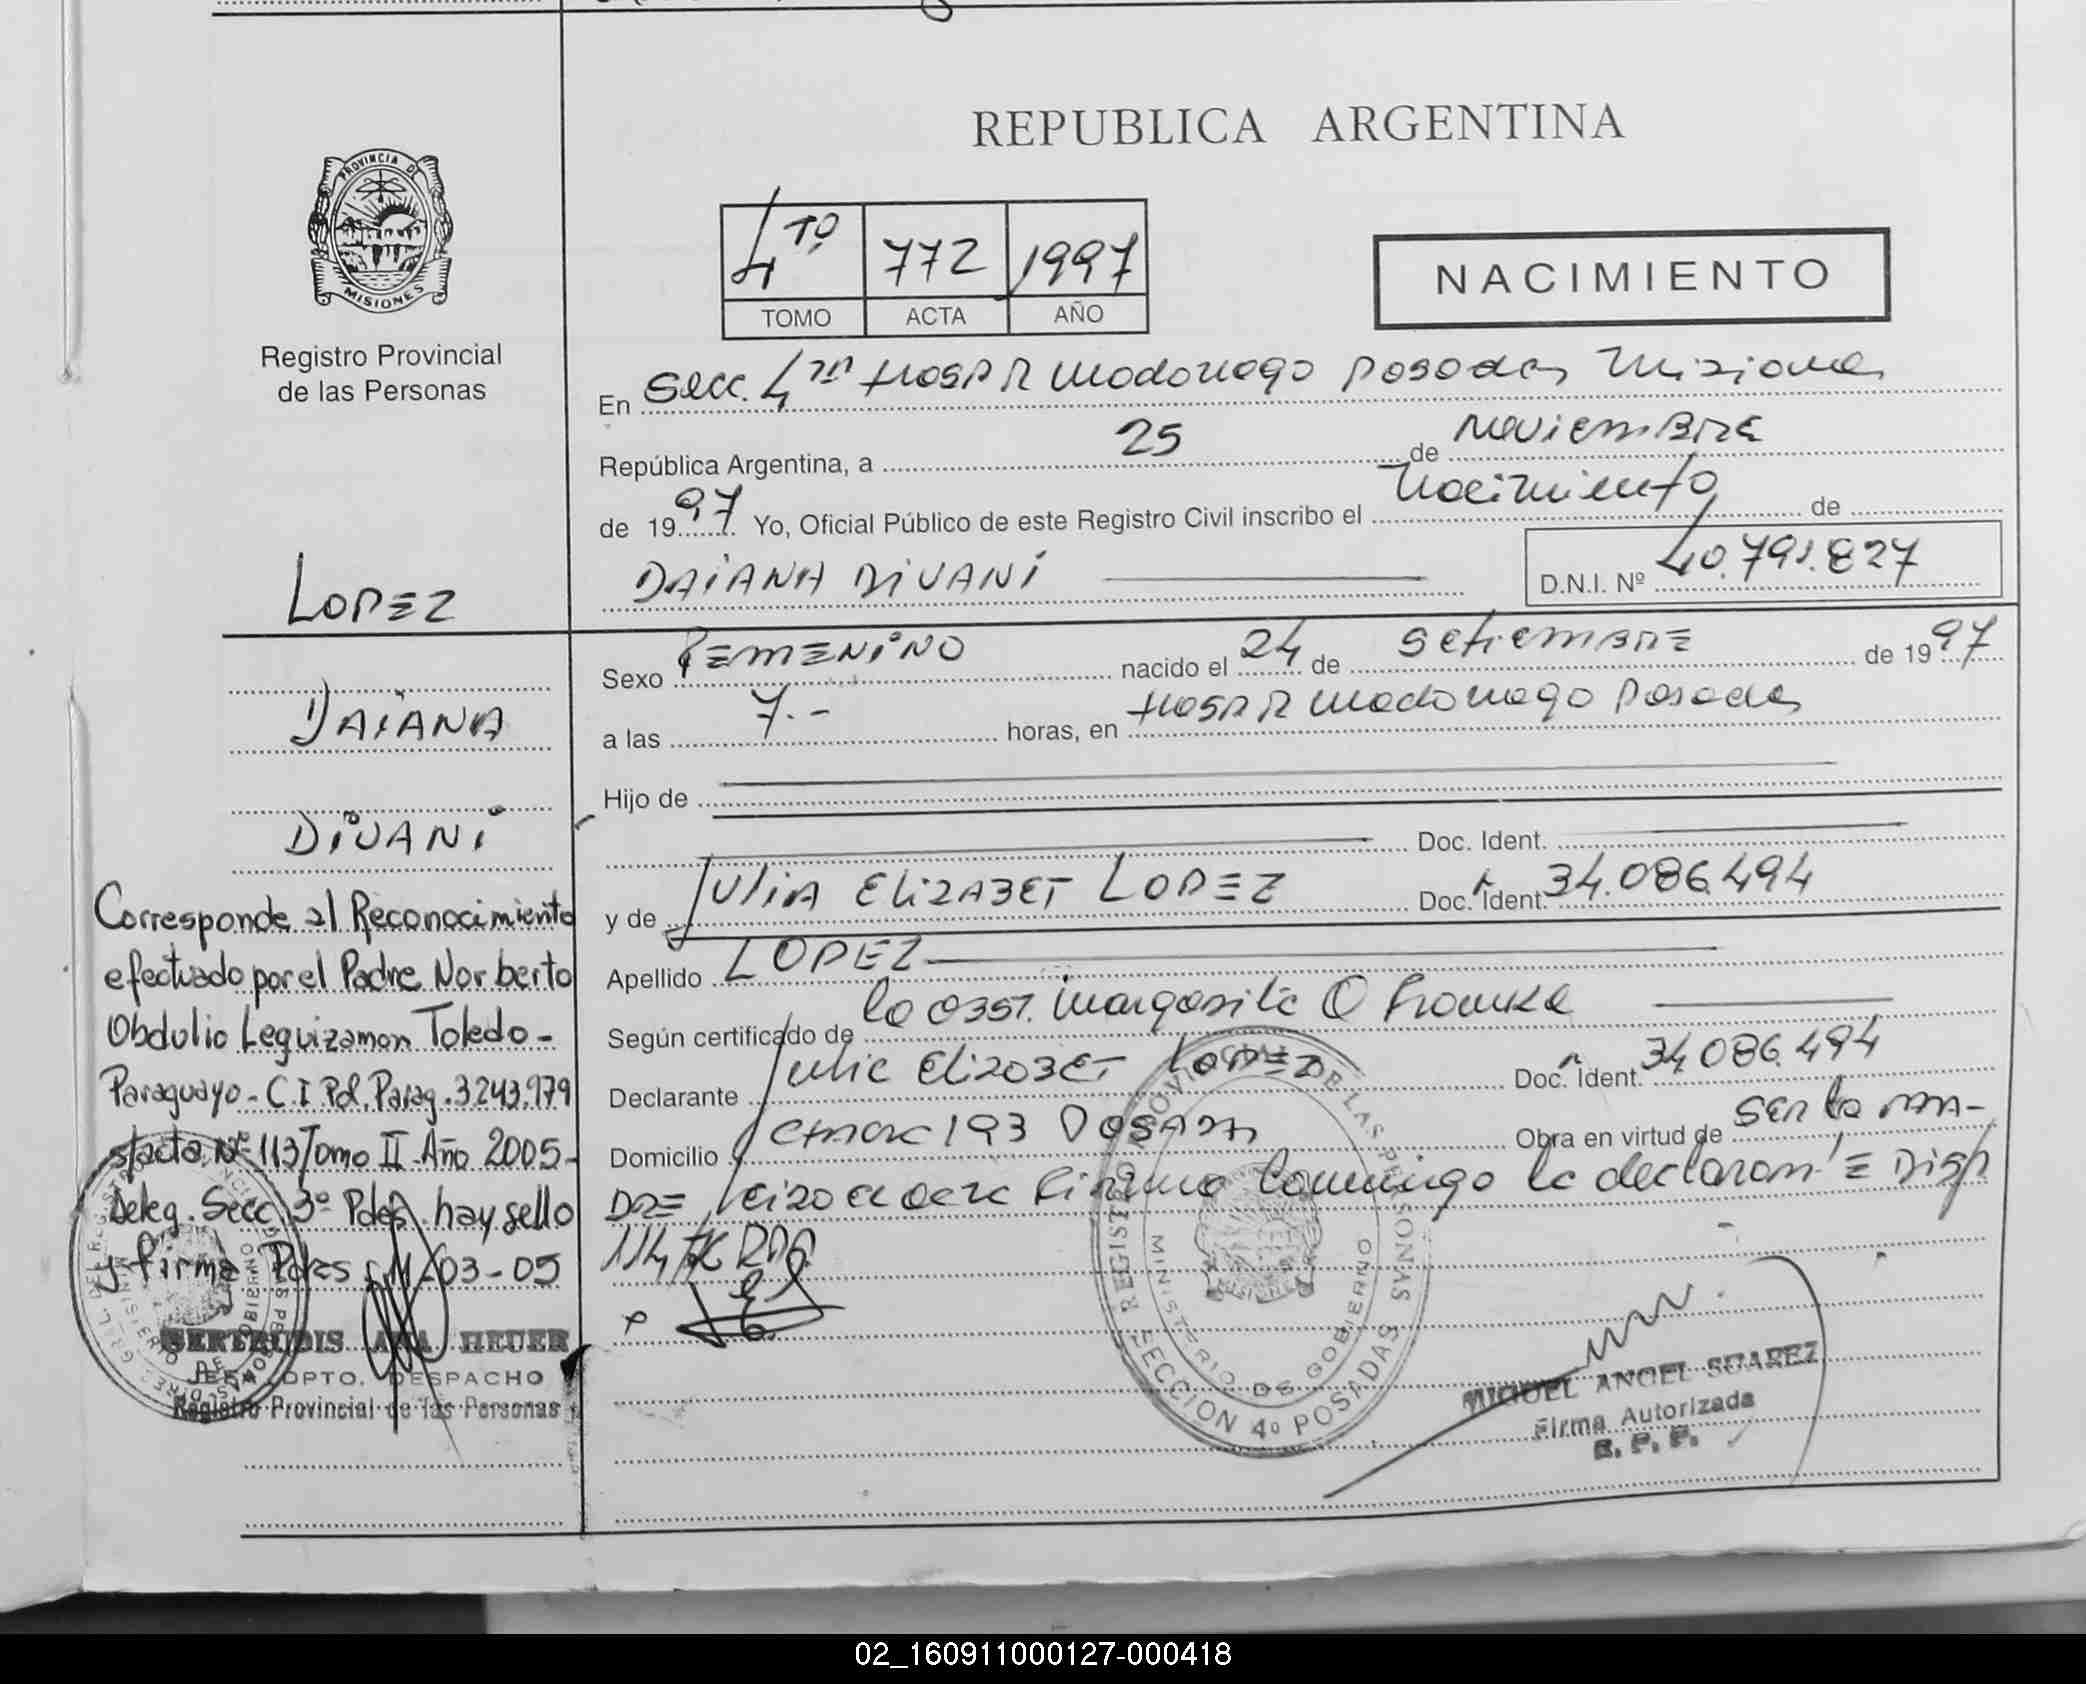 REPUBLICA ARGENTINA
PROVINCIA DE
MISIONES
Registro Provincial
de las Personas
4to 772 1997
TOMO ACTA AÑO
NACIMIENTO
En Secc. 4ta Hosp R Madariaga Posadas Misiones
República Argentina, a 25 de Noviembre
de 1997 Yo, Oficial Público de este Registro Civil inscribo el Nacimiento de
DAIANA DIVANI
D.N.I. Nº 40.791.827
LOPEZ
DAIANA
DIVANI
Sexo FEMENINO nacido el 24 de Setiembre de 1997
a las 7.- horas, en Hosp R Madariaga Posadas
Hijo de
Doc. Ident.
y de JULIA ELIZABET LOPEZ Doc. Ident. 34.086.494
Apellido LOPEZ
Según certificado de la Obst. Margarita O
Declarante Julia Elizabet LOPEZ Doc. Ident. 34.086.494
Domicilio 193 Obra en virtud de ser la ma-
dre firma conmigo la declarante
Corresponde al Reconocimiento
efectuado por el Padre Norberto
Obdulio Leguizamon Toledo-
Paraguayo - C I Pol. Parag. 3243.979
s/acta Nº 113 Tomo II Año 2005-
Deleg. Secc 3º Pdas. hay sello
y firma Pdas 03-05
GERTRUDIS ANA HEUER
JEFA DPTO. DESPACHO
Registro Provincial de las Personas
REGISTRO PROVINCIAL DE LAS PERSONAS
MINISTERIO DE GOBIERNO
SECCION 4º POSADAS
MIGUEL ANGEL SUAREZ
Firma Autorizada
R. P. P.
02_160911000127-000418